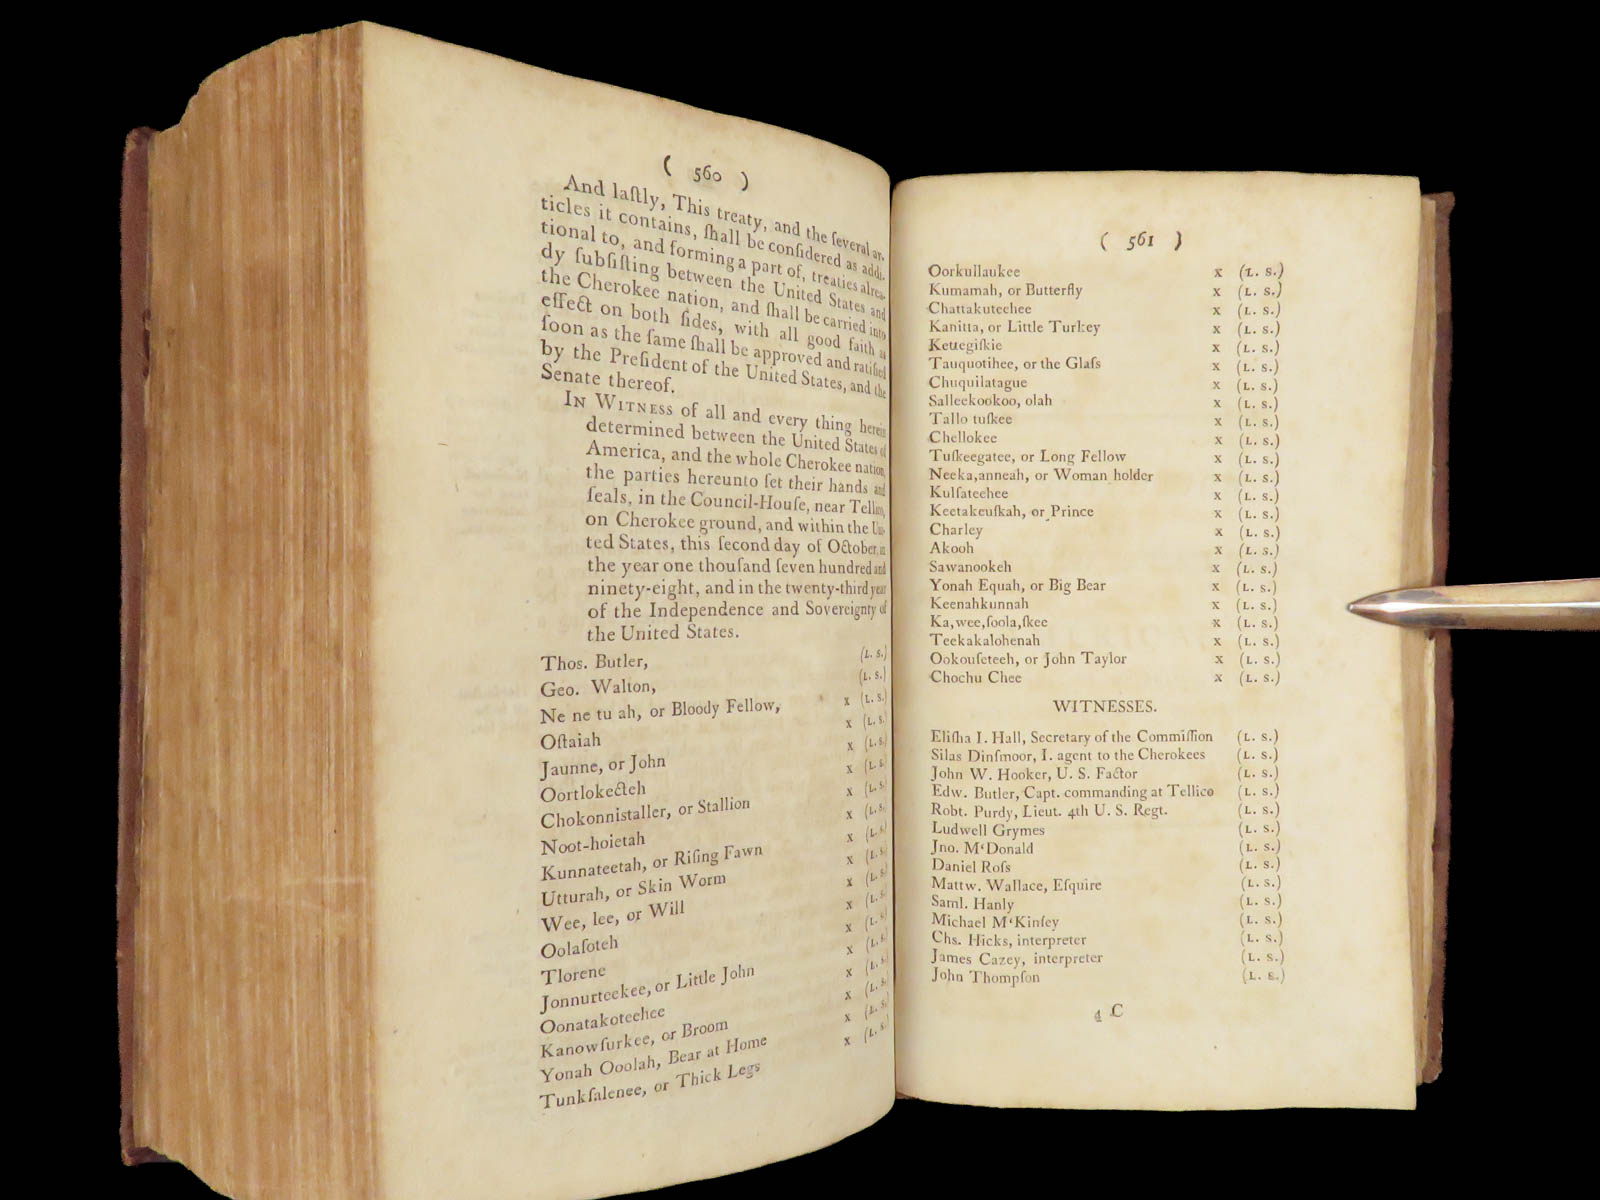 ( 560 )
And laſtly, This treaty, and the ſeveral ar-
ticles it contains, ſhall be conſidered as addi-
tional to, and forming a part of, treaties alrea-
dy ſubſiſting between the United States and
the Cherokee nation, and ſhall be carried into
effect on both ſides, with all good faith as
ſoon as the ſame ſhall be approved and ratified
by the Preſident of the United States, and the
Senate thereof.
IN WITNESS of all and every thing herein
determined between the United States of
America, and the whole Cherokee nation,
the parties hereunto ſet their hands and
ſeals, in the Council-Houſe, near Tellico,
on Cherokee ground, and within the Uni-
ted States, this ſecond day of October, in
the year one thouſand ſeven hundred and
ninety-eight, and in the twenty-third year
of the Independence and Sovereignty of
the United States.
Thos. Butler, (L. S.)
Geo. Walton, (L. S.)
Ne ne tu ah, or Bloody Fellow, x (L. S.)
Oſtaiah x (L. S.)
Jaunne, or John x (L. S.)
Oortlokecteh x (L. S.)
Chokonnistaller, or Stallion x (L. S.)
Noot-hoietah x (L. S.)
Kunnateetah, or Riſing Fawn x (L. S.)
Utturah, or Skin Worm x (L. S.)
Wee, lee, or Will x (L. S.)
Oolaſoteh x (L. S.)
Tlorene x (L. S.)
Jonnurteekee, or Little John x (L. S.)
Oonatakoteehee x (L. S.)
Kanowſurkee, or Broom x (L. S.)
Yonah Ooolah, Bear at Home x (L. S.)
Tunkſalenee, or Thick Legs x (L. S.)
( 561 )
Oorkullaukee x (L. S.)
Kumamah, or Butterfly x (L. S.)
Chattakuteehee x (L. S.)
Kanitta, or Little Turkey x (L. S.)
Kettegiſkie x (L. S.)
Tauquotihee, or the Glaſs x (L. S.)
Chuquilatague x (L. S.)
Salleekookoo, olah x (L. S.)
Tallo tuſkee x (L. S.)
Chellokee x (L. S.)
Tuſkeegatee, or Long Fellow x (L. S.)
Neeka,anneah, or Woman holder x (L. S.)
Kulſateehee x (L. S.)
Keetakeuſkah, or Prince x (L. S.)
Charley x (L. S.)
Akooh x (L. S.)
Sawanookeh x (L. S.)
Yonah Equah, or Big Bear x (L. S.)
Keenahkunnah x (L. S.)
Ka,wee,ſoola,ſkee x (L. S.)
Teekakalohenah x (L. S.)
Ookouſeteeh, or John Taylor x (L. S.)
Chochu Chee x (L. S.)
WITNESSES.
Eliſha I. Hall, Secretary of the Commiſſion (L. S.)
Silas Dinſmoor, I. agent to the Cherokees (L. S.)
John W. Hooker, U. S. Factor (L. S.)
Edw. Butler, Capt. commanding at Tellico (L. S.)
Robt. Purdy, Lieut. 4th U. S. Regt. (L. S.)
Ludwell Grymes (L. S.)
Jno. M‘Donald (L. S.)
Daniel Roſs (L. S.)
Mattw. Wallace, Eſquire (L. S.)
Saml. Hanly (L. S.)
Michael M‘Kinſey (L. S.)
Chs. Hicks, interpreter (L. S.)
James Cazey, interpreter (L. S.)
John Thompſon (L. S.)
4 C